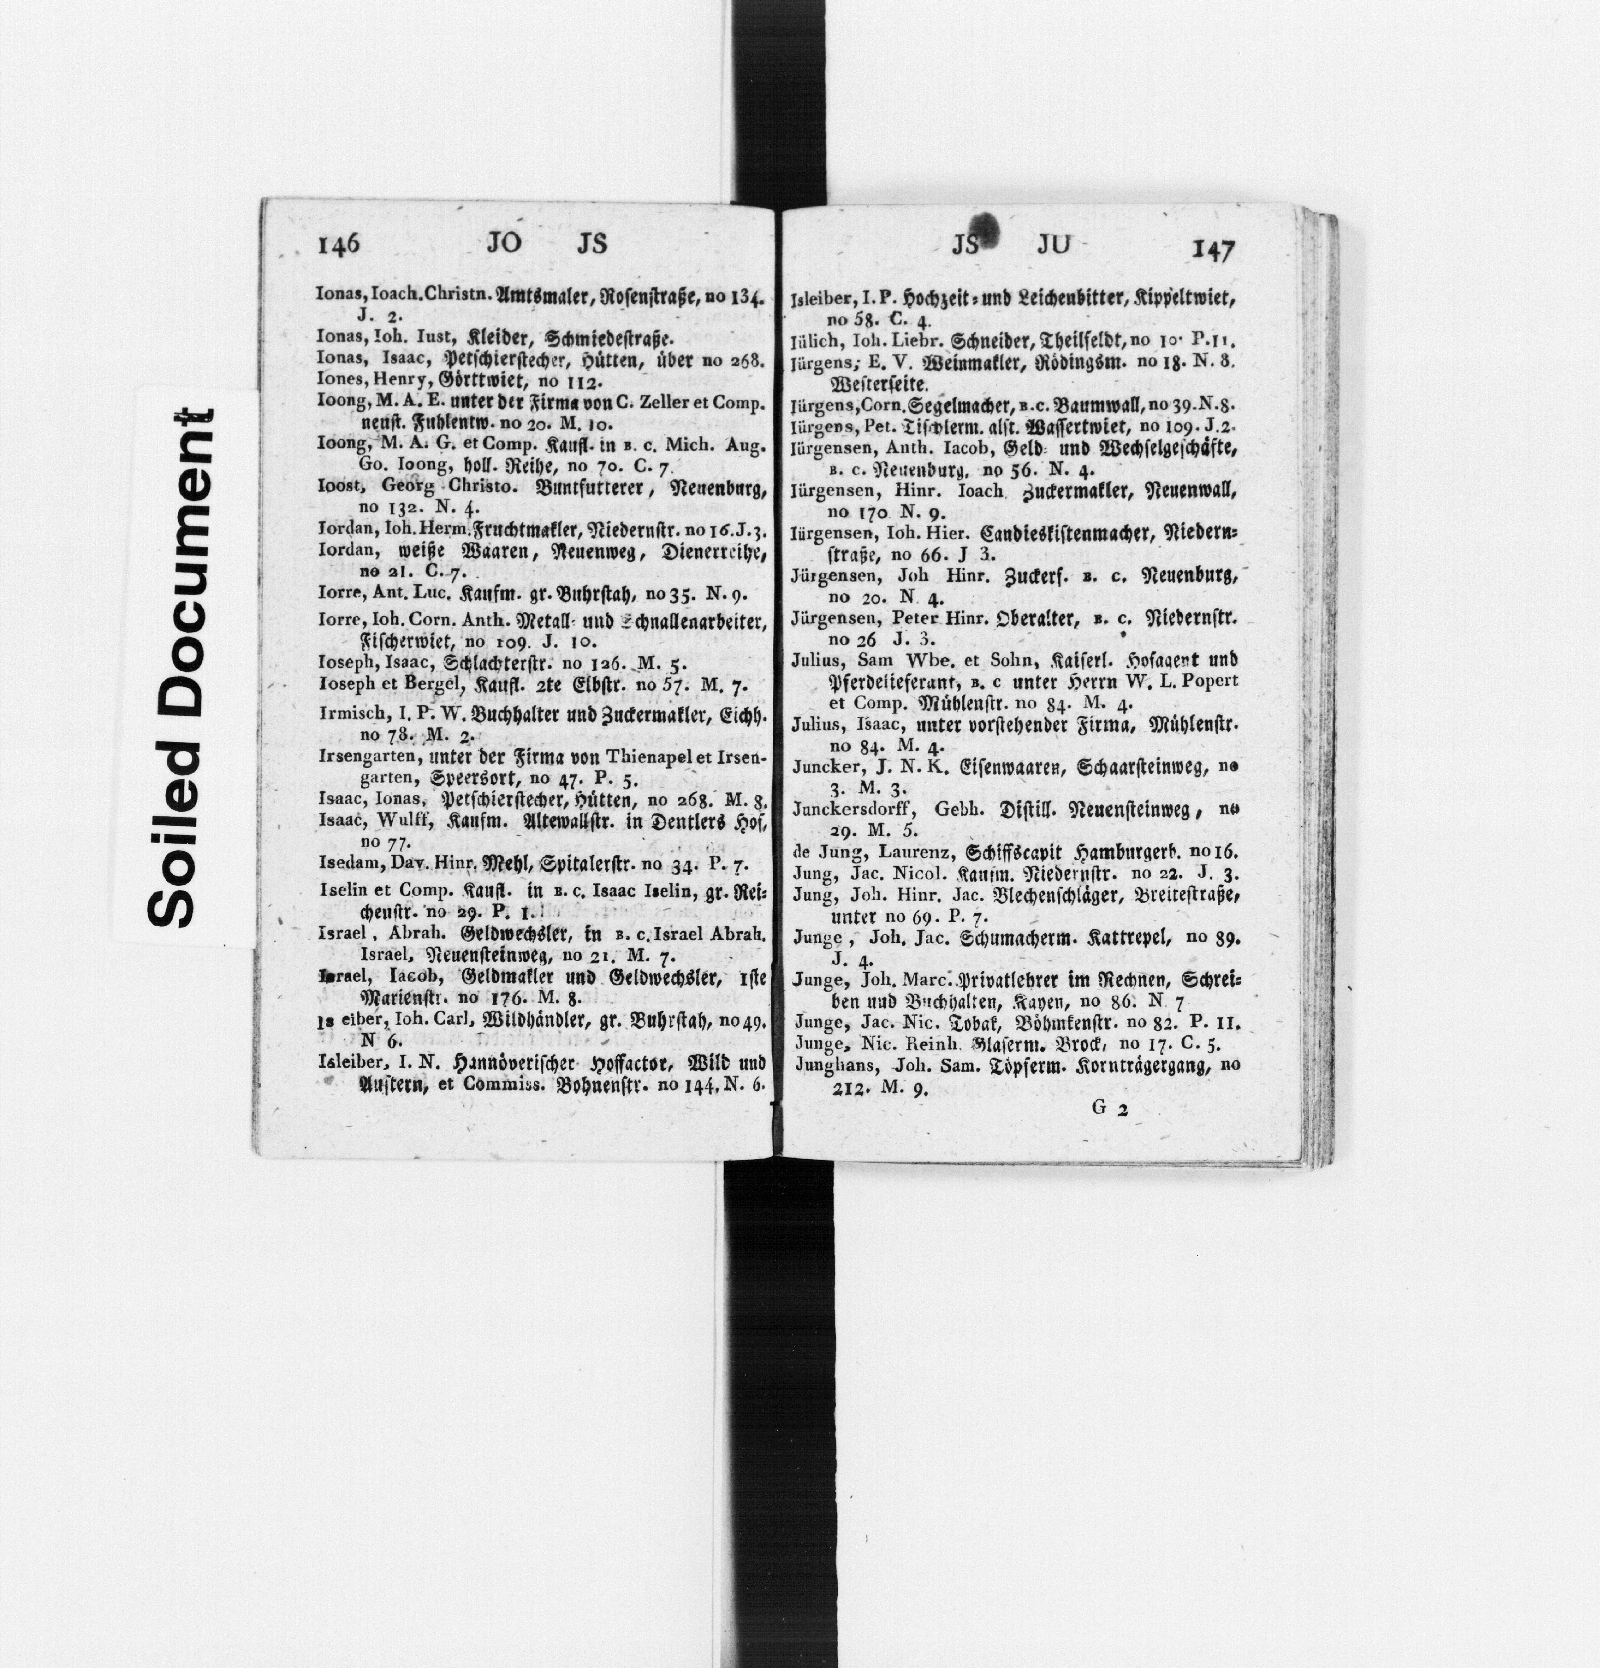 Soiled Document
146 JO JS
Ionas, Ioach. Christn. Amtsmaler, Rosenstraße, no 134.
J. 2.
Ionas, Ioh. Iust, Kleider, Schmiedestraße.
Ionas, Isaac, Petschierstecher, Hütten, über no 268.
Iones, Henry, Görttwiet, no 112.
Ioong, M. A. E. unter der Firma von C. Zeller et Comp.
neust. Fuhlentw. no 20. M. 10.
Ioong, M. A. G. et Comp. Kaufl. in B. C. Mich. Aug.
Go. Ioong, holl. Reihe, no 70. C. 7.
Ioost, Georg Christo. Buntfutterer, Neuenburg,
no 132. N. 4.
Iordan, Ioh. Herm. Fruchtmakler, Niedernstr. no 16. J. 3.
Iordan, weiße Waaren, Neuenweg, Dienerreihe,
no 21. C. 7.
Iorre, Ant. Luc. Kaufm. gr. Buhrstah, no 35. N. 9.
Iorre, Ioh. Corn. Anth. Metall- und Schnallenarbeiter,
Fischerwiet, no 109. J. 10.
Ioseph, Isaac, Schlachterstr. no 126. M. 5.
Ioseph et Bergel, Kaufl. 2te Elbstr. no 57. M. 7.
Irmisch, I. P. W. Buchhalter und Zuckermakler, Eichh.
no 78. M. 2.
Irsengarten, unter der Firma von Thienapel et Irsen-
garten, Speersort, no 47. P. 5.
Isaac, Ionas, Petschierstecher, Hütten, no 268. M. 8.
Isaac, Wulff, Kaufm. Altewallstr. in Dentlers Hof,
no 77.
Isedam, Dav. Hinr. Mehl, Spitalerstr. no 34. P. 7.
Iselin et Comp. Kaufl. in B. C. Isaac Iselin, gr. Rei-
chenstr. no 29. P. 1.
Israel, Abrah. Geldwechsler, in B. C. Israel Abrah.
Israel, Neuensteinweg, no 21. M. 7.
Israel, Iacob, Geldmakler und Geldwechsler, 1ste
Marienstr. no 176. M. 8.
Is eiber, Ioh. Carl, Wildhändler, gr. Buhrstah, no 49.
N 6.
Isleiber, I. N. Hannöverischer Hoffactor, Wild und
Austern, et Commiss. Bohnenstr. no 144. N. 6.
JS JU 147
Isleiber, I. P. Hochzeit- und Leichenbitter, Kippeltwiet,
no 58. C. 4.
Iülich, Ioh. Liebr. Schneider, Theilfeldt, no 10. P. 11.
Iürgens, E. V. Weinmakler, Rödingsm. no 18. N. 8.
Westerseite.
Iürgens, Corn. Segelmacher, B. C. Baumwall, no 39. N. 8.
Iürgens, Pet. Tischlerm. alst. Wassertwiet, no 109. J. 2.
Iürgensen, Anth. Iacob, Geld- und Wechselgeschäfte,
B. C. Neuenburg, no 56. N. 4.
Iürgensen, Hinr. Ioach. Zuckermakler, Neuenwall,
no 170 N. 9.
Iürgensen, Ioh. Hier. Candieskistenmacher, Niedern-
straße, no 66. J 3.
Jürgensen, Joh Hinr. Zuckerf. B. C. Neuenburg,
no 20. N 4.
Jürgensen, Peter Hinr. Oberalter, B. C. Niedernstr.
no 26 J. 3.
Julius, Sam Wbe. et Sohn, Kaiserl. Hofagent und
Pferdelieferant, B. C unter Herrn W. L. Popert
et Comp. Mühlenstr. no 84. M. 4.
Julius, Isaac, unter vorstehender Firma, Mühlenstr.
no 84. M. 4.
Juncker, J. N. K. Eisenwaaren, Schaarsteinweg, no
3. M. 3.
Junckersdorff, Gebh. Distill. Neuensteinweg, no
29. M. 5.
de Jung, Laurenz, Schiffscapit Hamburgerb. no 16.
Jung, Jac. Nicol. Kaufm. Niedernstr. no 22. J. 3.
Jung, Joh. Hinr. Jac. Blechenschläger, Breitestraße,
unter no 69. P. 7.
Junge, Joh. Jac. Schumacherm. Kattrepel, no 89.
J. 4.
Junge, Joh. Marc. Privatlehrer im Rechnen, Schrei-
ben und Buchhalten, Kayen, no 86. N 7
Junge, Jac. Nic. Tobak, Böhmkenstr. no 82. P. 11.
Junge, Nic. Reinh. Glaserm. Brock, no 17. C. 5.
Junghans, Joh. Sam. Töpferm. Kornträgergang, no
212. M. 9.
G 2